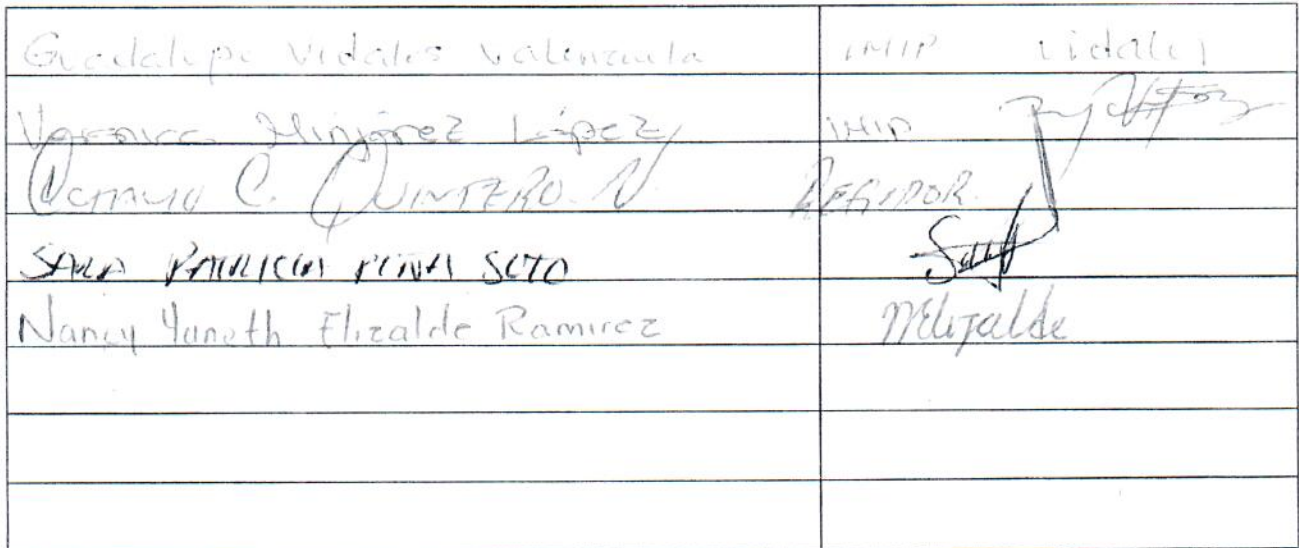 Guadalupe Vidales Valenzuela IMIP Vidales
Veronica Minjarez López IMIP
Octavio C. Quintero. N REGIDOR.
SARA PATRICIA PIÑA SOTO
Nancy Yaneth Elizalde Ramirez NElizalde